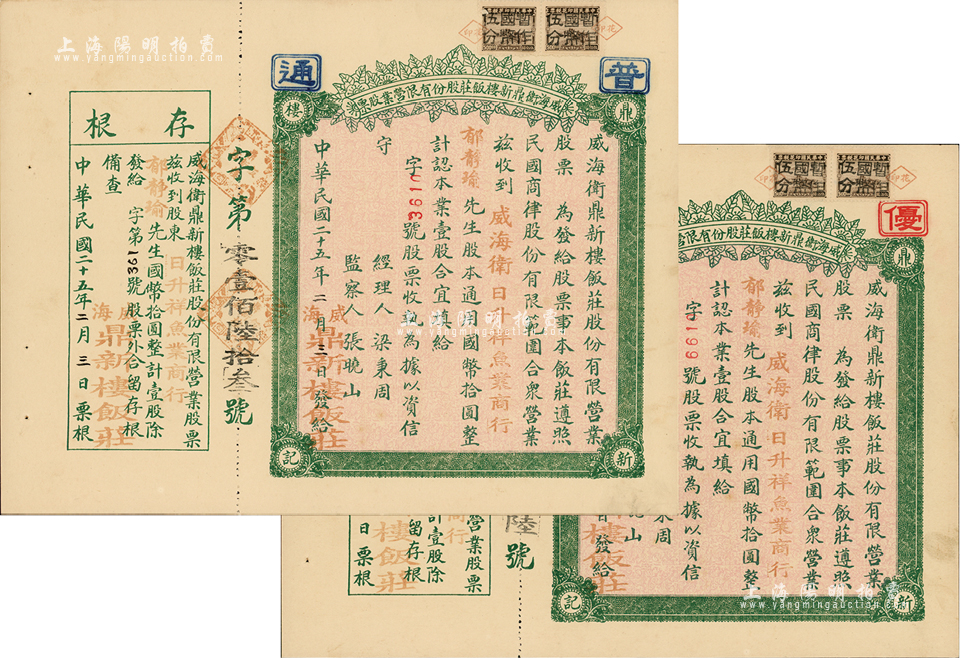 上海陽明拍賣
www.yangmingauction.com
暫作國幣伍分
暫作國幣伍分
普通
威海衛鼎新樓飯莊股份有限營業股票
鼎
新
樓
記
威海衛鼎新樓飯莊股份有限營業
股票 為發給股票事本飯莊遵照
民國商律股份有限範圍合衆營業
茲收到 威海衛日升祥魚業商行
郁靜瑜先生股本通用國幣拾圓整
計認本業壹股合宜填給
字 號股票收執為據以資信
守
經理人 梁秉周
監察人 張晚山
中華民國二十五年二月三日發給
威海
鼎新樓飯莊
字第零壹佰陸拾叁號
存根
威海衛鼎新樓飯莊股份有限營業股票
茲收到股東 日升祥魚業商行
郁靜瑜先生國幣拾圓整計壹股除
發給 字第 號股票外合留存根
備查
中華民國二十五年二月三日票根
威海
鼎新樓飯莊
上海陽明拍賣
www.yangmingauction.com
暫作國幣伍分
暫作國幣伍分
優
威海衛鼎新樓飯莊股份有限營
鼎
新
記
威海衛鼎新樓飯莊股份有限營業
股票 為發給股票事本飯莊遵照
民國商律股份有限範圍合衆營業
茲收到 威海衛日升祥魚業商行
郁靜瑜先生股本通用國幣拾圓整
計認本業壹股合宜填給
字 號股票收執為據以資信
秉周
山
日發給
樓飯莊
陸號
營業股票
商行
計壹股除
留存根
日票根
樓飯莊